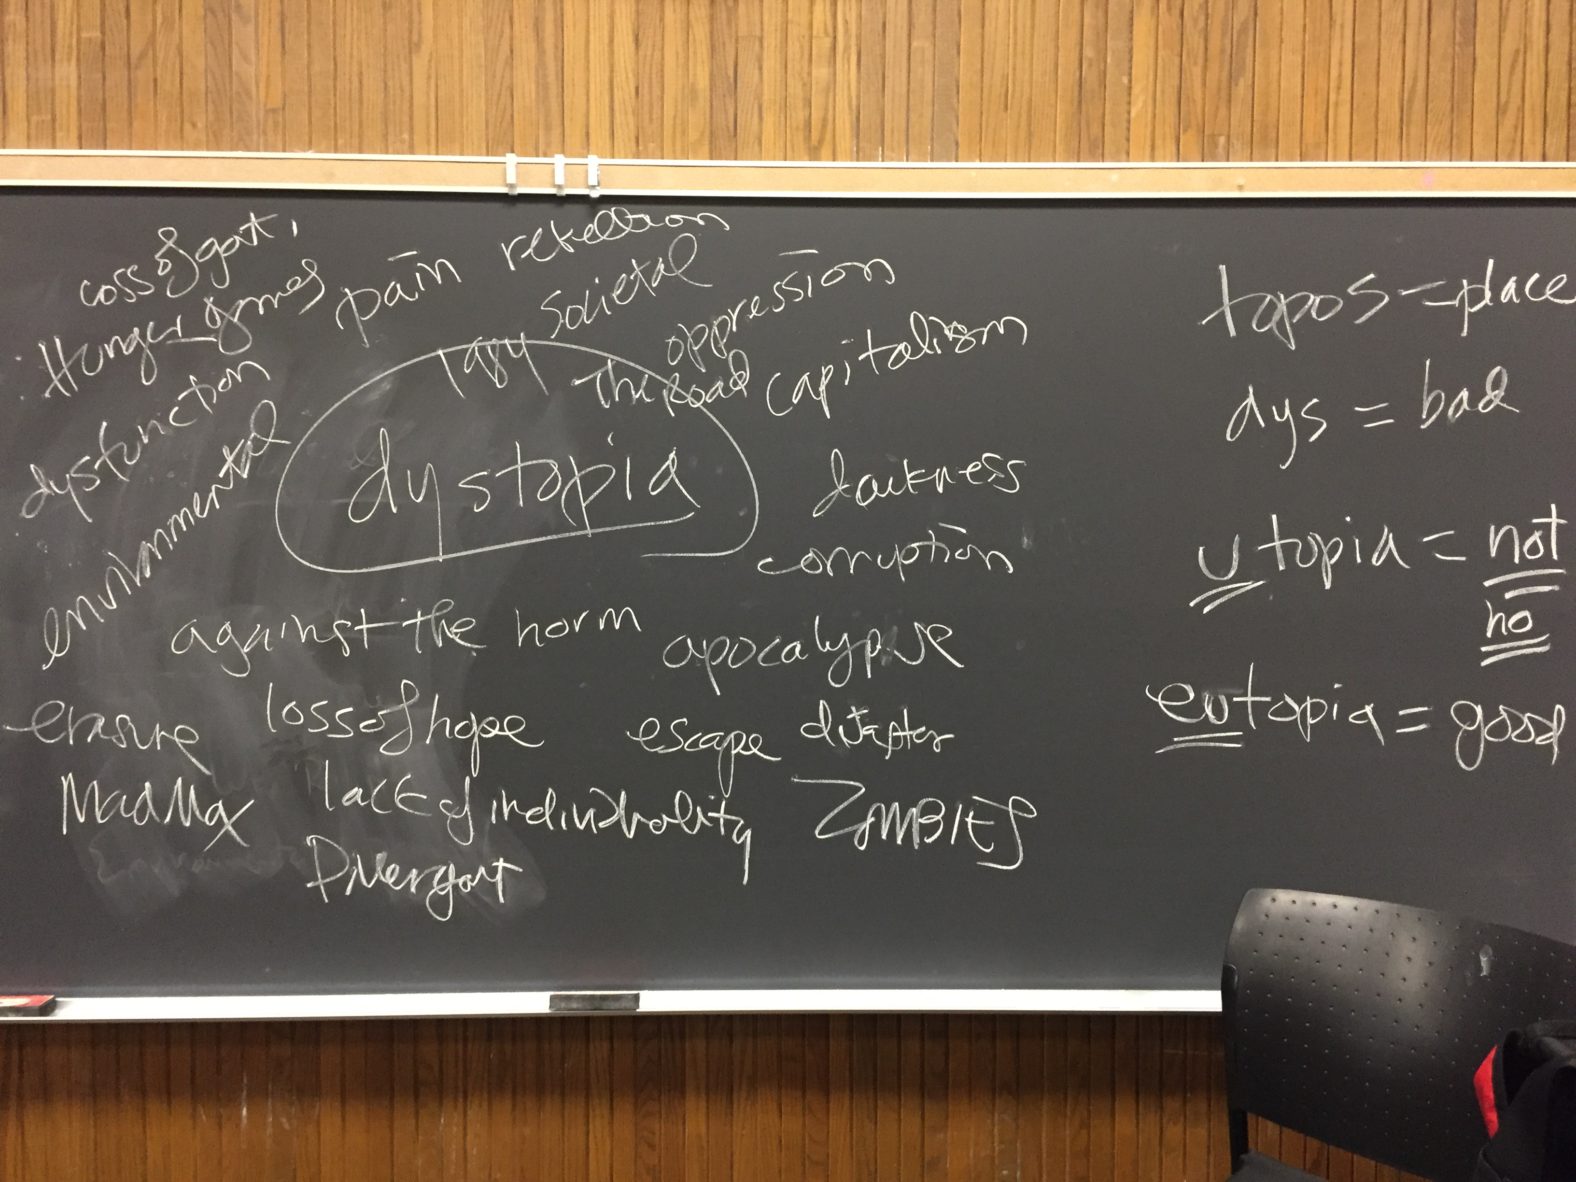 loss of govt.
Hunger games
pain
rebellion
societal
oppression
1984
The Road
capitalism
dysfunction
environmental
dystopia
darkness
corruption
against the norm
apocalypse
erasure
loss of hope
escape
Mad Max
lack of individuality
ZOMBIES
Divergent
topos = place
dys = bad
utopia = not
no
eutopia = good